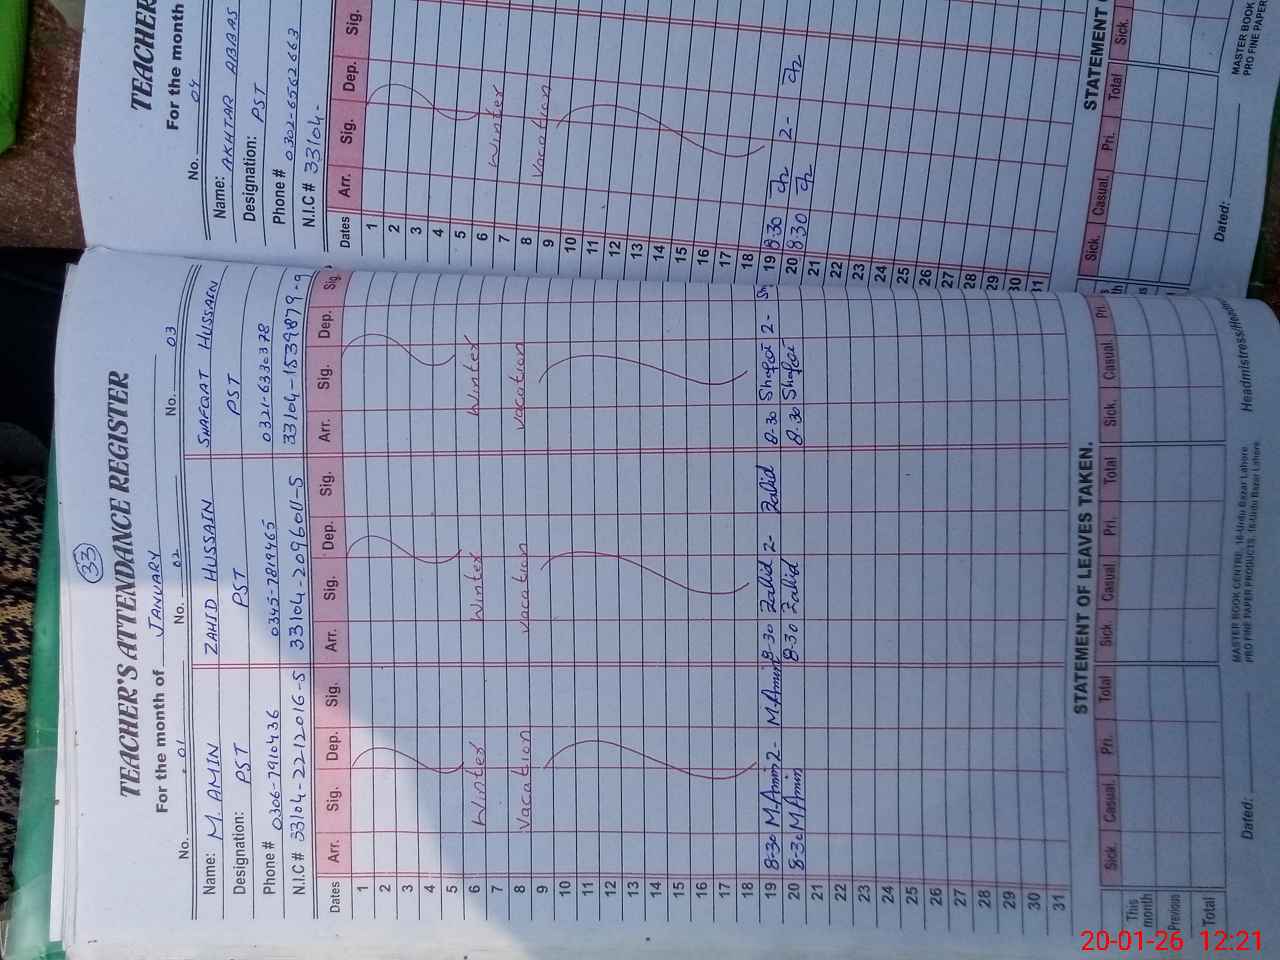 33
TEACHER'S ATTENDANCE REGISTER
For the month of JANUARY
No. 01 No. 02 No. 03
Name: M. AMIN ZAHID HUSSAIN SHAFQAT HUSSAIN
Designation: PST PST PST
Phone # 0306-7910436 0345-7819465 0321-6330378
N.I.C # 33104-2212016-5 33104-2096011-5 33104-1539879-9
Dates Arr. Sig. Dep. Sig. Arr. Sig. Dep. Sig. Arr. Sig. Dep. Sig.
1
2
3
4
5
6 Winter Winter Winter
7
8 Vacation Vacation Vacation
9
10
11
12
13
14
15
16
17
18
19 8-30 M.Amin 2- M.Amin 8-30 Zahid 2- Zahid 8-30 Shafqat 2- Sh
20 8-30 M.Amin 8-30 Zahid 8-30 Shafqat
21
22
23
24
25
26
27
28
29
30
31
STATEMENT OF LEAVES TAKEN.
Sick. Casual. Pri. Total Sick. Casual Pri. Total Sick. Casual. Pri.
This month
Previous
Total
MASTER BOOK CENTRE, 16-Urdu Bazar Lahore
PRO FINE PAPER PRODUCTS, 16-Urdu Bazar Lahore.
Dated: Headmistress/Headm
TEACHER
For the month
No. 04
Name: AKHTAR ABBAS
Designation: PST
Phone # 0302-6562663
N.I.C # 33104-
Dates Arr. Sig. Dep. Sig.
1
2
3
4
5
6
7 Winter
8
9 Vacation
10
11
12
13
14
15
16
17
18
19 8.30 2-
20 8.30
21
22
23
24
25
26
27
28
29
30
31
STATEMENT
Sick. Casual. Pri. Total Sick.
MASTER BOOK
PRO FINE PAPER
Dated:
20-01-26 12:21